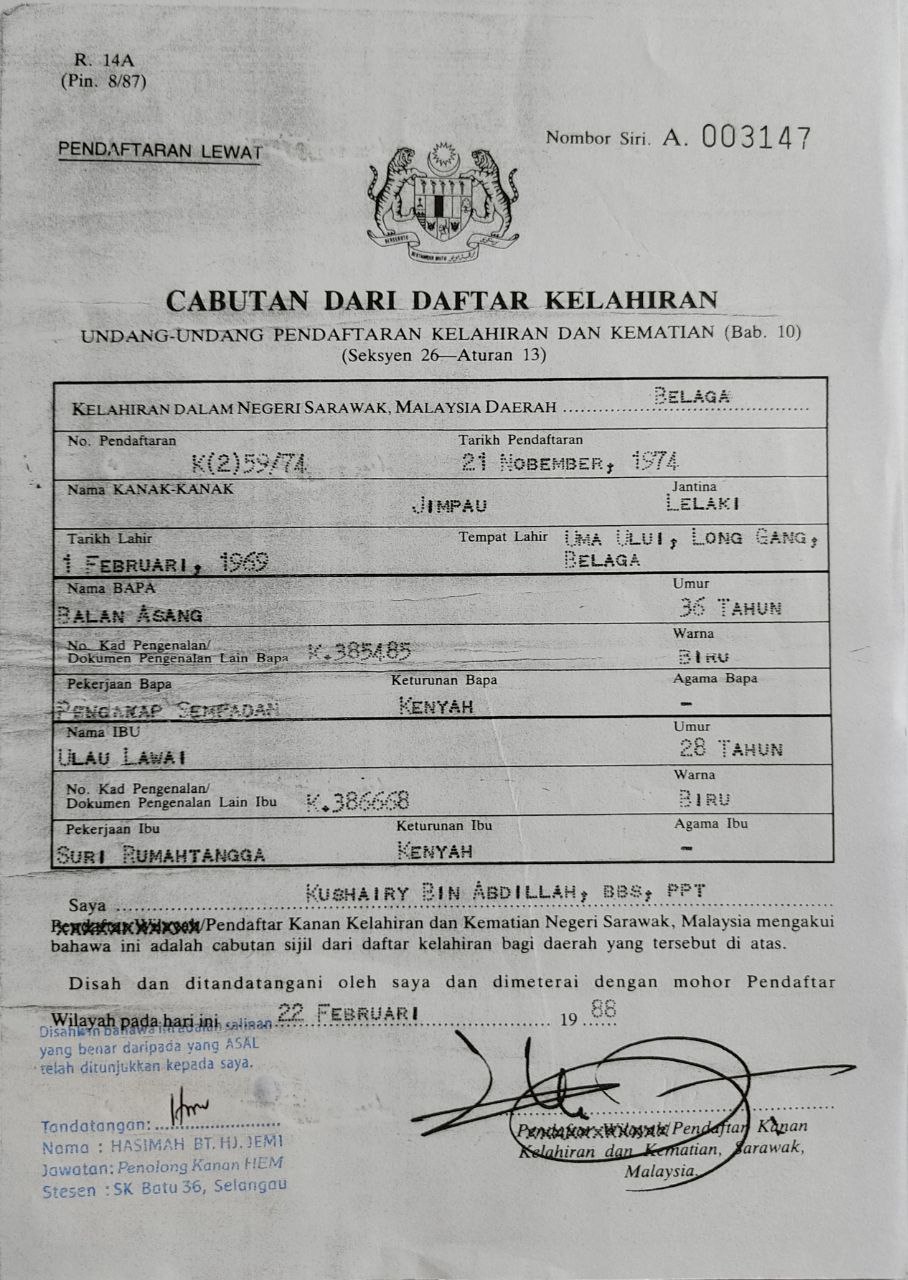 R. 14A
(Pin. 8/87)
PENDAFTARAN LEWAT
Nombor Siri. A. 003147
CABUTAN DARI DAFTAR KELAHIRAN
UNDANG-UNDANG PENDAFTARAN KELAHIRAN DAN KEMATIAN (Bab. 10)
(Seksyen 26—Aturan 13)
KELAHIRAN DALAM NEGERI SARAWAK, MALAYSIA DAERAH BELAGA
No. Pendaftaran Tarikh Pendaftaran
K(2)59/74 21 NOBEMBER, 1974
Nama KANAK-KANAK Jantina
JIMPAU LELAKI
Tarikh Lahir Tempat Lahir UMA ULUI, LONG GANG,
1 FEBRUARI, 1969 BELAGA
Nama BAPA Umur
BALAN ASANG 36 TAHUN
No. Kad Pengenalan/ Warna
Dokumen Pengenalan Lain Bapa K.385485 BIRU
Pekerjaan Bapa Keturunan Bapa Agama Bapa
PENGAKAP SEMPADAN KENYAH -
Nama IBU Umur
ULAU LAWAI 28 TAHUN
No. Kad Pengenalan/ Warna
Dokumen Pengenalan Lain Ibu K.386668 BIRU
Pekerjaan Ibu Keturunan Ibu Agama Ibu
SURI RUMAHTANGGA KENYAH -
Saya KUSHAIRY BIN ABDILLAH, BBS, PPT
Pendaftar Wilayah/Pendaftar Kanan Kelahiran dan Kematian Negeri Sarawak, Malaysia mengakui
bahawa ini adalah cabutan sijil dari daftar kelahiran bagi daerah yang tersebut di atas.
Disah dan ditandatangani oleh saya dan dimeterai dengan mohor Pendaftar
Wilayah pada hari ini 22 FEBRUARI 19 88
Disahkan bahawa ini adalah salinan
yang benar daripada yang ASAL
telah ditunjukkan kepada saya.
Tandatangan:
Nama : HASIMAH BT. HJ. JEMI
Jawatan: Penolong Kanan HEM
Stesen : SK Batu 36, Selangau
Pendaftar Wilayah/Pendaftar Kanan
Kelahiran dan Kematian, Sarawak,
Malaysia.